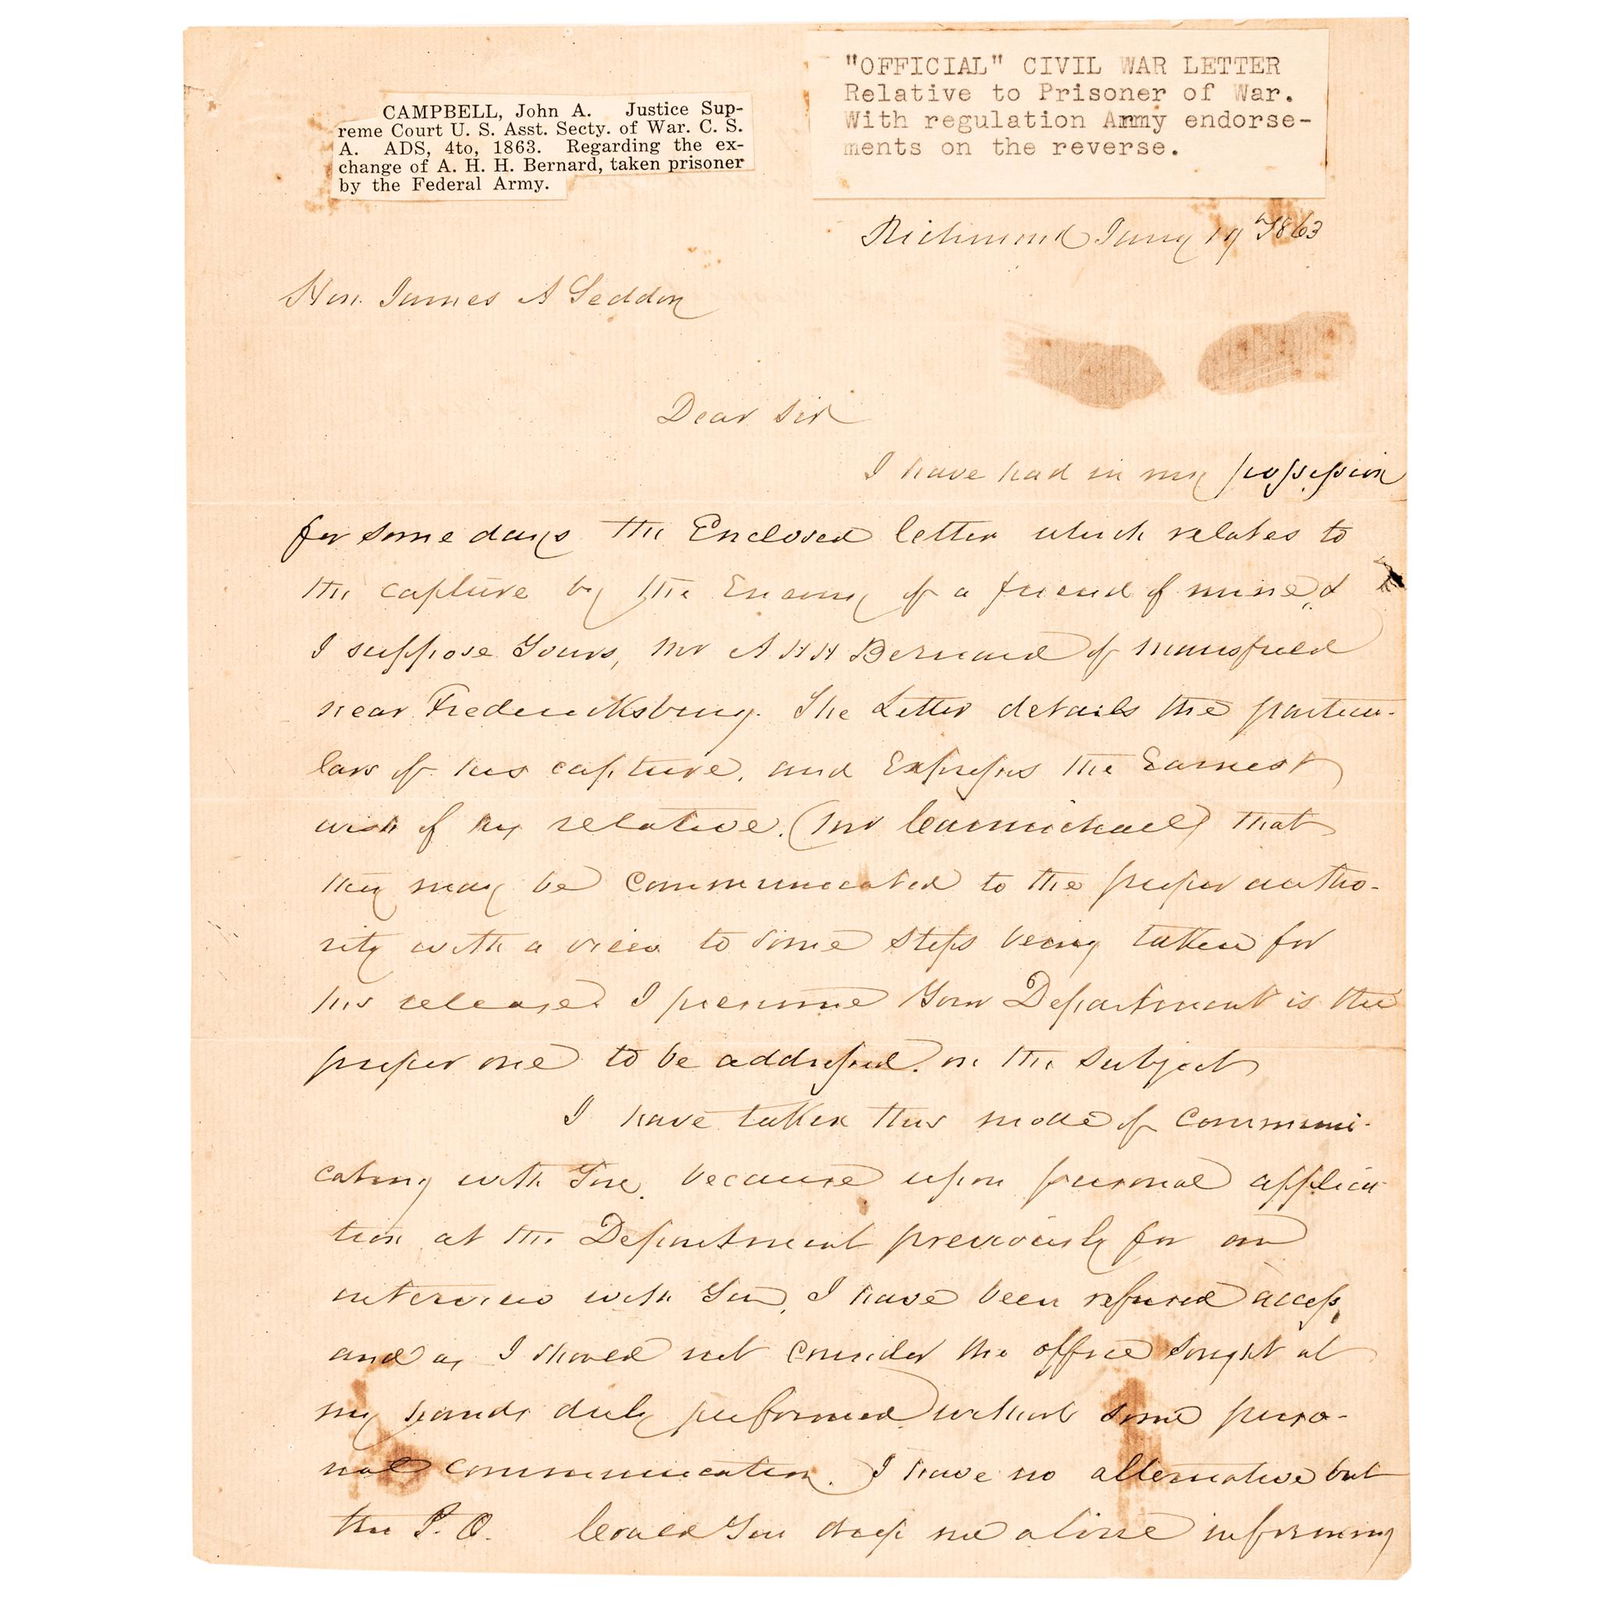 CAMPBELL, John A. Justice Sup-
reme Court U. S. Asst. Secty. of War. C. S.
A. ADS, 4to, 1863. Regarding the ex-
change of A. H. H. Bernard, taken prisoner
by the Federal Army.
"OFFICIAL" CIVIL WAR LETTER
Relative to Prisoner of War.
With regulation Army endorse-
ments on the reverse.
Richmond Jany 19th 1863
Hon. James A Seddon
Dear Sir
I have had in my possession
for some days the Enclosed letter which relates to
the capture by the Enemy of a friend of mine, &
I suppose Yours, Mr A H H Bernard of Mansfield
near Fredericksburg. The Letter details the particu-
lars of his capture, and Expresses the Earnest
wish of my relative, (Mr Carmichael) that
they may be communicated to the proper autho-
rity with a view to some steps being taken for
his release. I presume Your Department is the
proper one to be addressed on the subject
I have taken this mode of communi-
cating with You, because upon personal applica-
tion at the Department previously for an
interview with You, I have been refused access,
and as I should not consider the office sought at
my hands duly performed without some perso-
nal communication. I have no alternative but
the P. O. Could You drop me a line informing